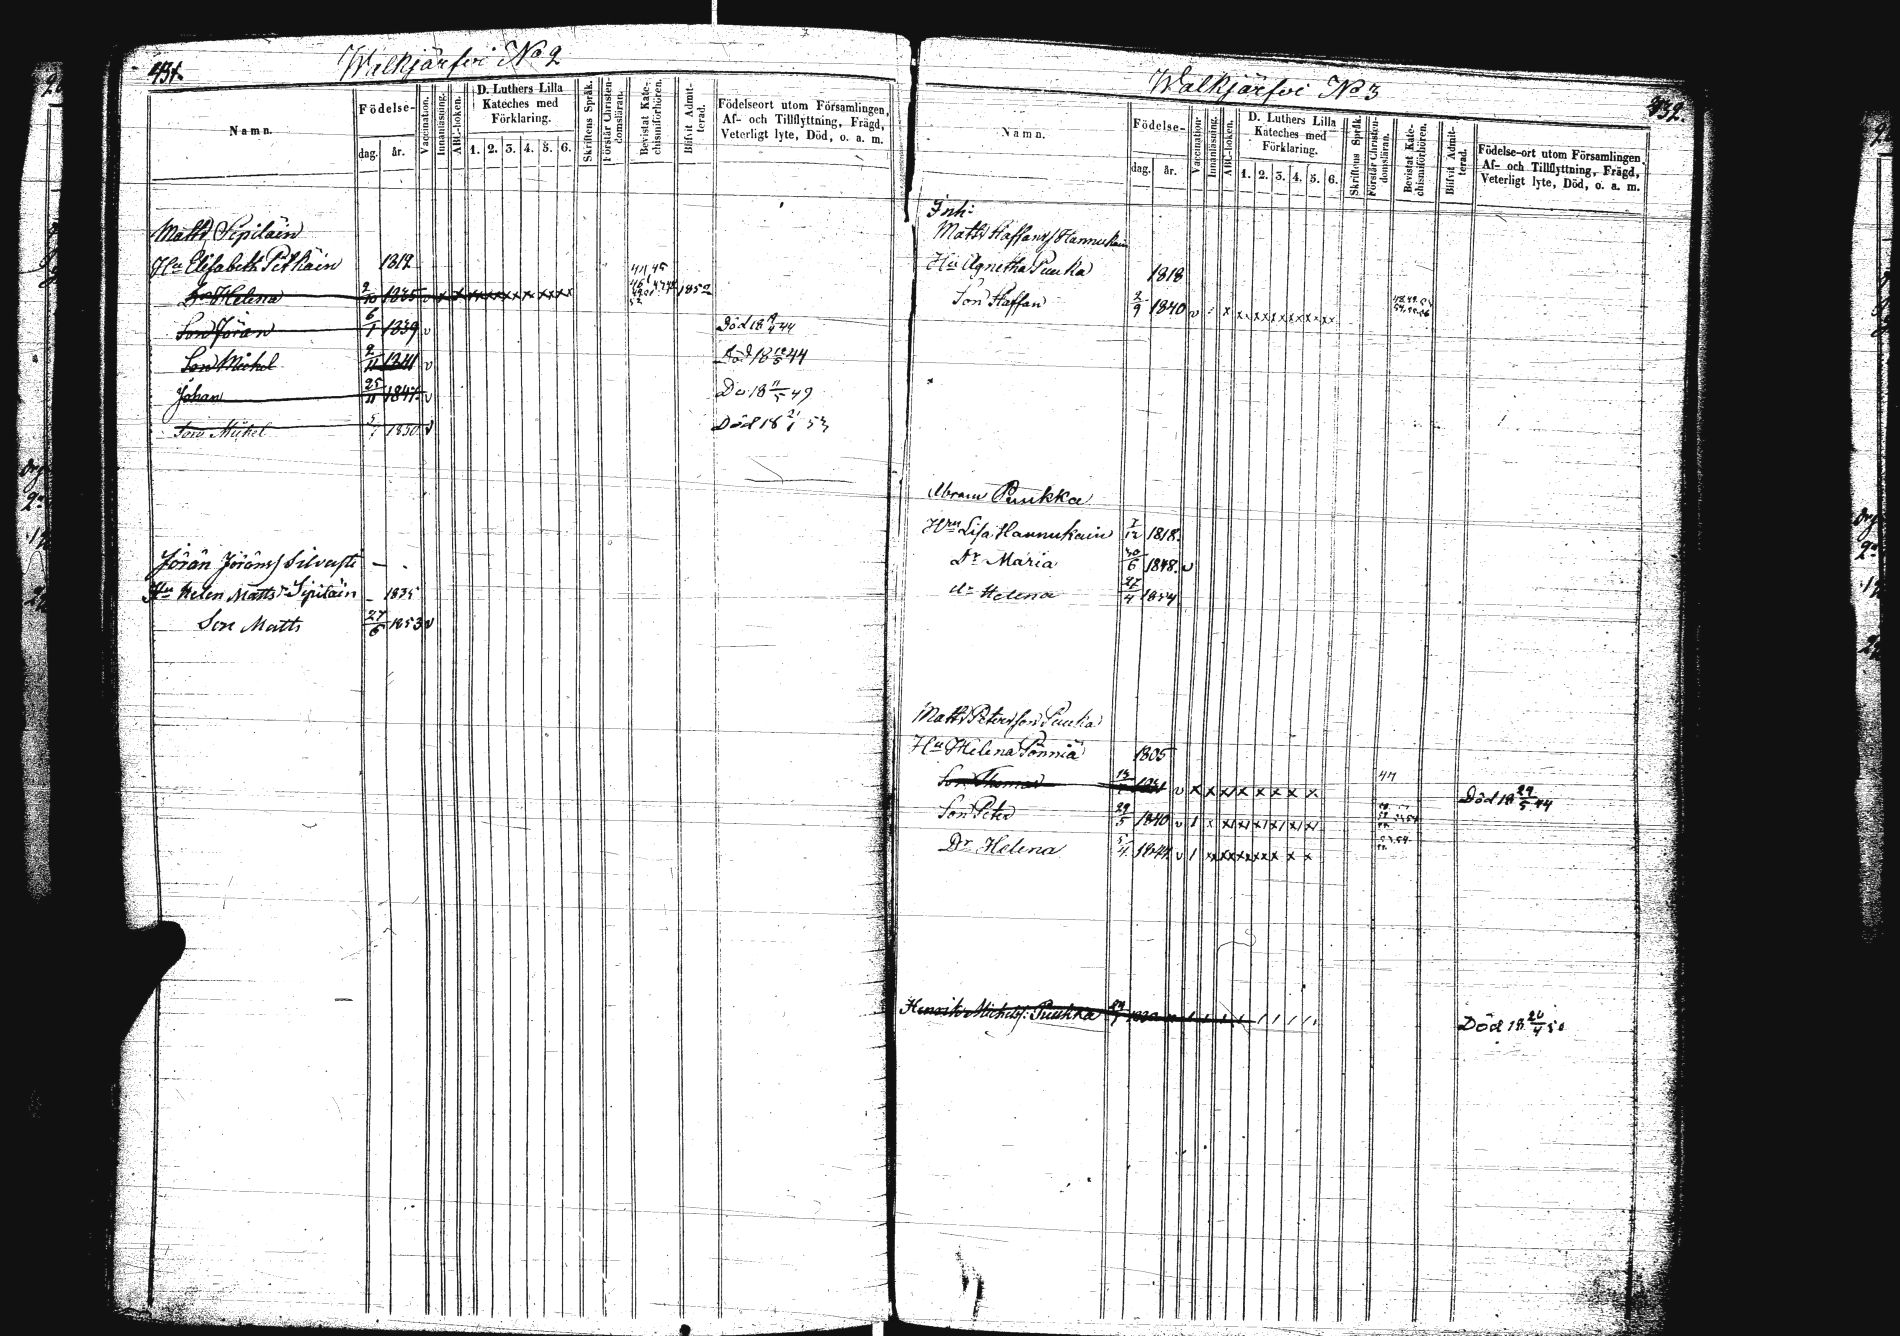 431.
Walkjärfvi No 2
Namn.
Födelse-
dag. år.
Vaccination.
Innanläsning.
ABC-boken.
D. Luthers Lilla
Kateches med
Förklaring.
1. 2. 3. 4. 5. 6.
Skriftens Språk.
Förstår Christen-
domsläran.
Bevistat Kate-
chismiförhören.
Blifvit Admit-
terad.
Födelseort utom Församlingen,
Af- och Tillflyttning, Frägd,
Veterligt lyte, Död, o. a. m.
Matts Sipiläin
Hu Elisabeth Pitkäin 1817
Dr Helena 2/10 1835 v x x 1852
Son Jöran 6/1 1839 v Död 18 44
Son Michel 2/11 1841 v Död 18 12/5 44
Johan 25/11 1847 v Do 18 11/5 49
Son Mickel 5/1 1850 v Död 18 21/1 53
Jöran Jöranss Silvasti
Hu Helen Mattsdr Sipiläin 1835
Son Matts 27/6 1853 v
432.
Walkjärfvi No 3
Namn.
Födelse-
dag. år.
Vaccination.
Innanläsning.
ABC-boken.
D. Luthers Lilla
Kateches med
Förklaring.
1. 2. 3. 4. 5. 6.
Skriftens Språk.
Förstår Christen-
domsläran.
Bevistat Kate-
chismiförhören.
Blifvit Admit-
terad.
Födelse-ort utom Församlingen,
Af- och Tillflyttning, Frägd,
Veterligt lyte, Död, o. a. m.
Inh:
Matts Staffanss Hannukain
Hu Agnetha Puuka 1818
Son Staffan 2/9 1840 v
Abram Puukka
Hru Lisa Hannukain 1/12 1818.
Dr Maria 30/6 1848. v
dr Helena 27/4 1854
Matts Petersson Puuka
Hu Helena Pönniä 1805
Son Thomas v x x x x x x x x 44 Död 18 29/5 44
Son Peter 29/5 1840 v
Dr Helena 5/4 1844 v
Henrik Michelss: Puukka Död 18 20/4 50